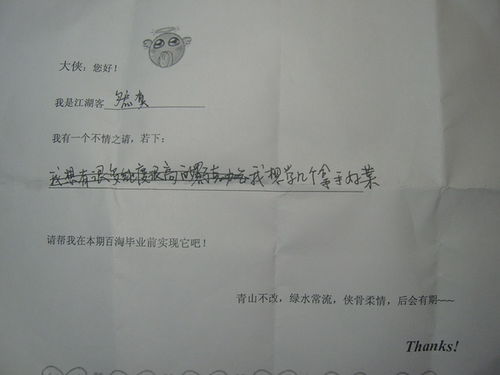 大侠：您好！
我是江湖客
我有一个不情之请，若下：
我想有很多 我想学几个拿手好菜
请帮我在本期百淘毕业前实现它吧！
青山不改，绿水常流，侠骨柔情，后会有期~~
Thanks!